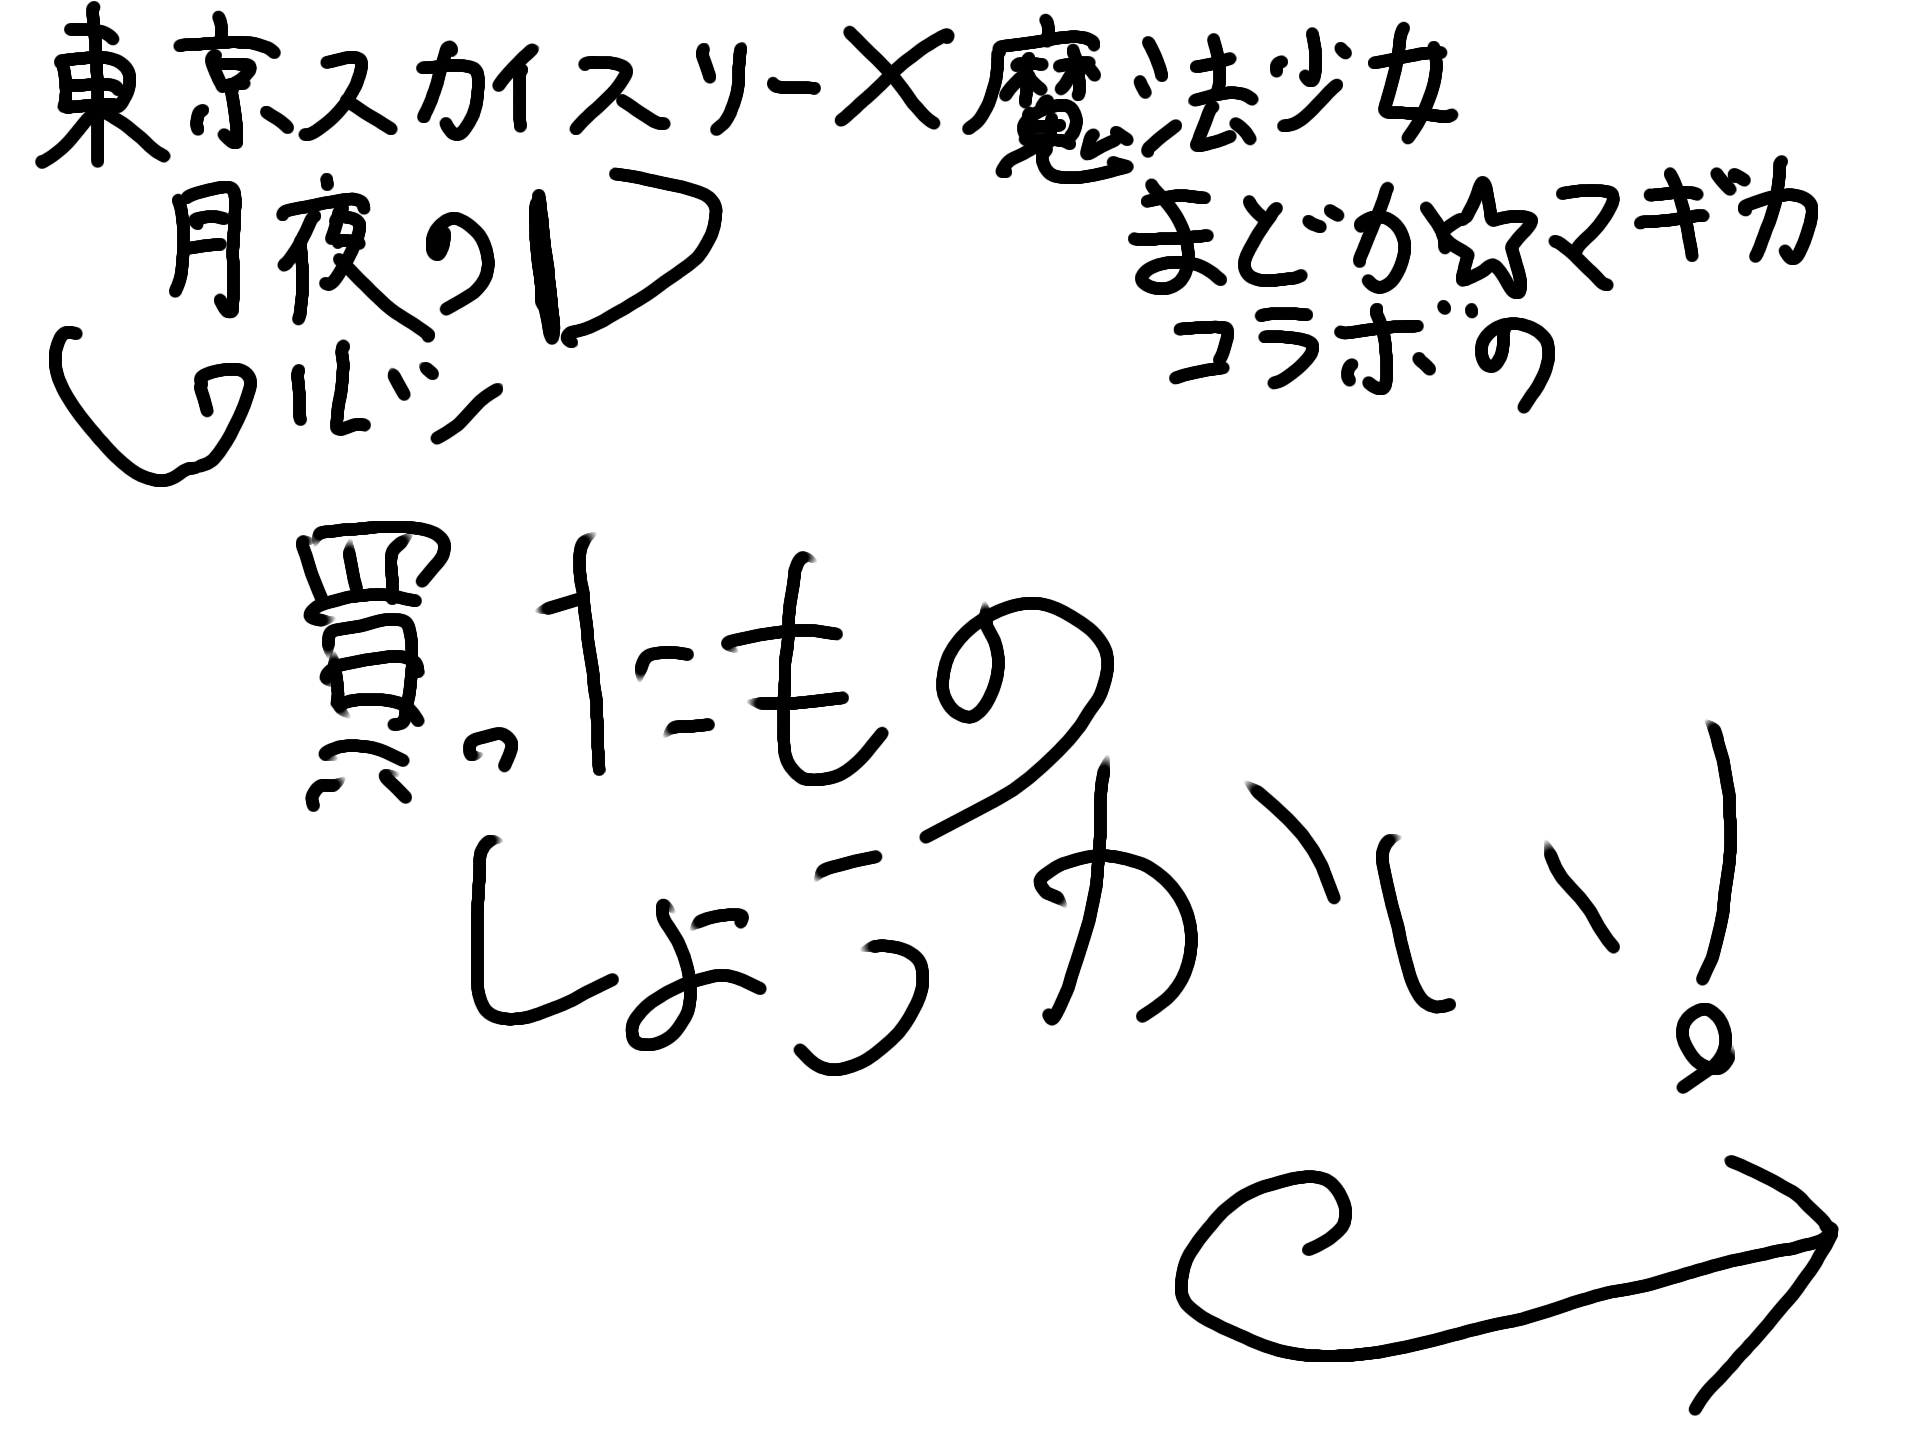 東京スカイスリー×魔法少女
まどか☆マギカ
コラボの
月夜の
ワルツ
買ったもの
しょうかい!